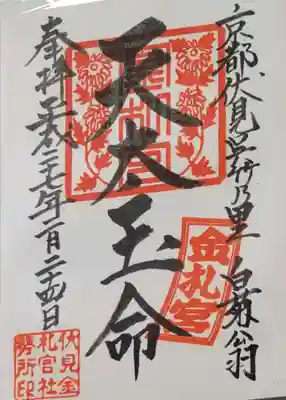 京都伏見呉竹乃里 白菊翁
天太玉命
奉拝 平成二十七年一月二十四日
金札宮
伏見金
札宮社
務所印